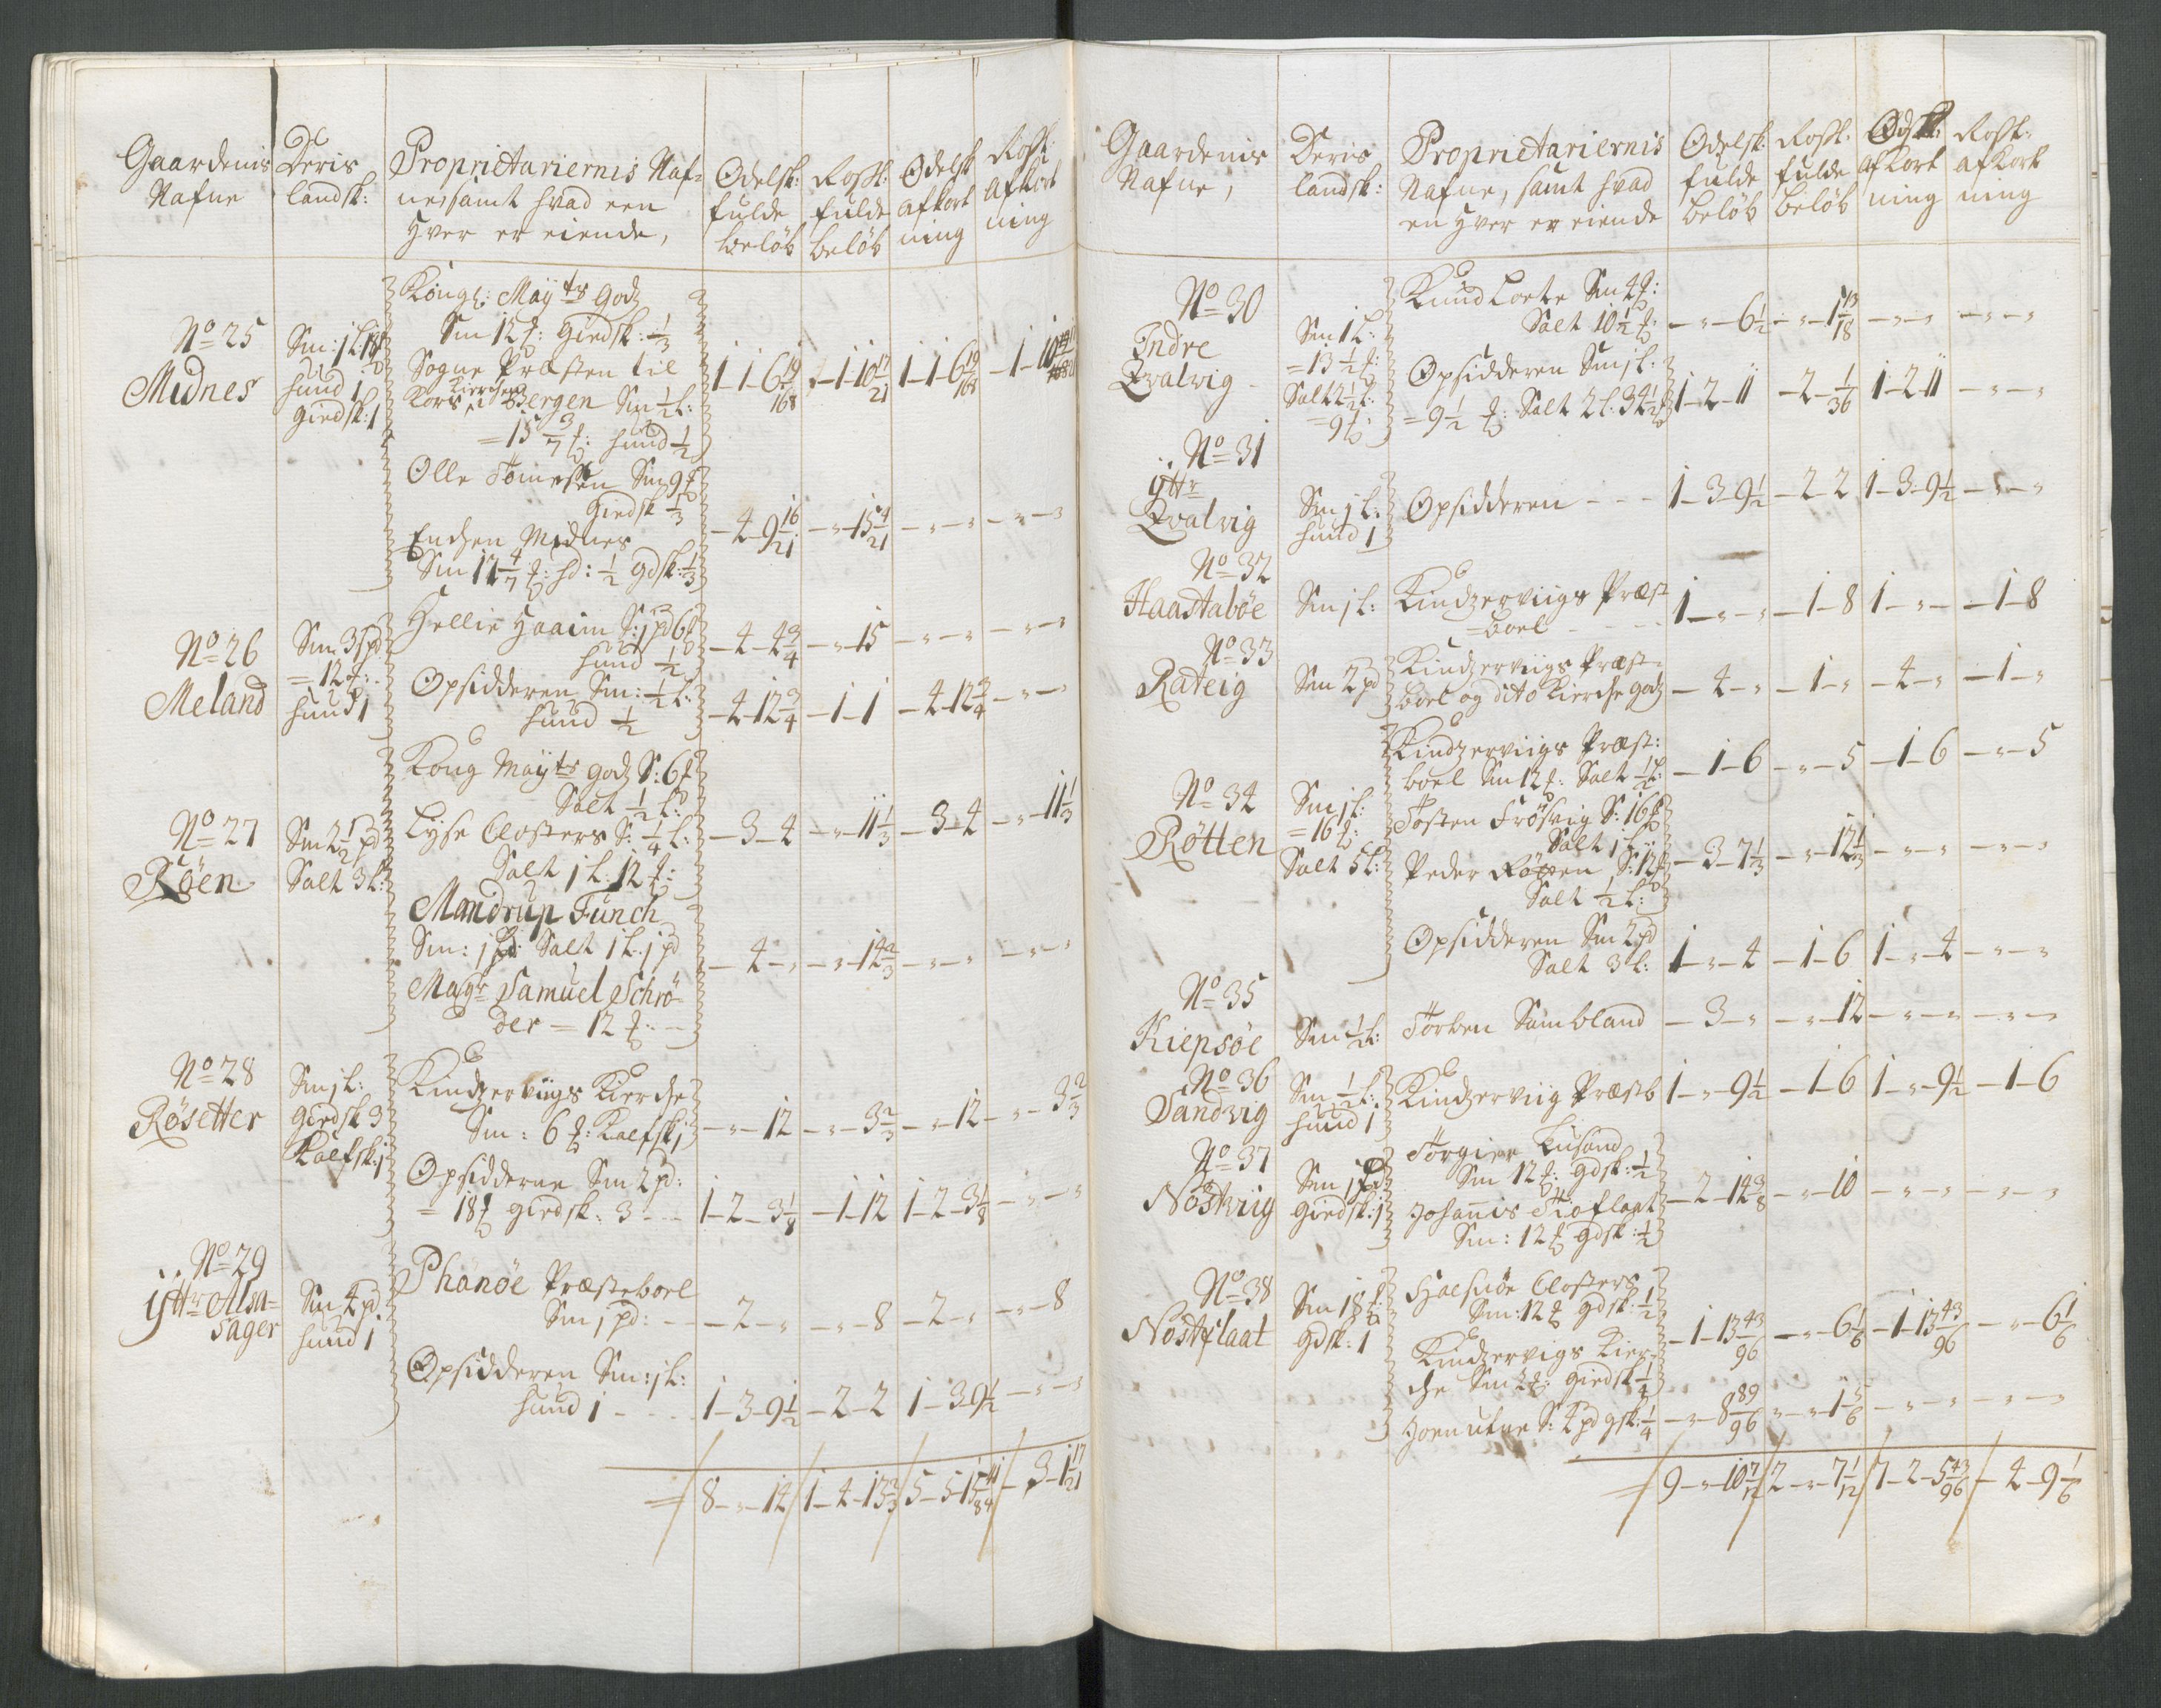 Gaardenis Nafne
Deris landsk:
Proprietariernis Naf=
ne, samt hvad een
hver er eiende,
Odelsk: fulde beløb
Roßt: fulde beløb
Odelsk afkort ning
Roßt: afkort ning
No 25
Midnes
hund 1
Giedsk: 1
Kongl: Mayts Godz
Sm 12 #: Giedsk: 1/3
Sogne Præsten til
Kors Kierchen i Bergen Sm 1/2 L:
= 15 3/7 #: hund 1/2
1-1-6 19/168
1-10 17/21
1-1-6 19/168
Olle Tømeßen Sm 9 #
Giedsk 1/3
Endsen Midnes
Sm 11 4/7 #: hd: 1/2 gdsk: 1/3
-4-9 16/21
-"-15 4/21
-"-"
-"-"
No 26
Meland
Sm 3 pd
= 12 #:
hund 1
Hellie Haaim S: 1 pd 6 #
hund 1/2
-4-4 3/4
-"-15
-"-"
-"-"
Opsidderen Sm: 1/2 L:
hund 1/2
-4-12 3/4
-1-1
-4-12 3/4
-"-"
No 27
Røen
Sm 2 1/2 pd
Salt 3 L:
Kong Mayts Godz S: 6 #
Salt 1/2 L:
Lyse Closters S: 1/4 L:
Salt 1 L: 12 #:
-3-4
-"-11 1/3
-3-4
-"-11 1/3
Mandrup Funch
Sm: 1 pd: Salt 1 L: 1 pd
Magr Samuel Schrö=
der = 12 #:
-4-"
-"-14 2/3
-"-"
-"-"
No 28
Røsetter
Sm 1 L:
Giedsk 3
Kalfsk: 1
Kindzerviigs Kierche
Sm: 6 #: Kalfsk 1
-"-12
-"-3 2/3
-"-12
-"-3 2/3
Opsidderne Sm 2 pd:
= 18 # giedsk: 3
1-2-3 1/8
-1-12
1-2-3 1/8
-"-"
No 29
Yttr Alsa=
sager
Sm 4 pd
hund 1
Phanøe Præsteboel
Sm 1 pd:
-2-"
-"-8
-2-"
-"-8
Opsidderen Sm: 1 L:
hund 1
1-3-9 1/2
-2-2
1-3-9 1/2
-"-"
8-"-14
1-4-13 2/3
5-5-15 41/84
-3-1 17/21
Gaardenis Nafne,
Deris landsk:
Proprietariernis
Nafne, samt hvad
en hver er eiende
Odelsk: fulde beløb
Roßt: fulde beløb
Odsk: afkort ning
Roßt: afkort ning
No 30
Indre
Qvalvig
Sm 1 L:
= 13 1/2 #:
Salt 2 1/2 L:
= 9 #
Knud Lote Sm 4 #:
Salt 10 1/2 #:
-"-6 1/2
-"-1 13/18
-"-"
-"-"
Opsidderen Sm 1 L:
= 9 1/2 #: Salt 2 L: 34 1/2 #
1-2-11
-2-1/36
1-2-11
-"-"
No 31
Yttr
Qvalvig
Sm 1 L:
hund 1
Opsidderen
1-3-9 1/2
-2-2
1-3-9 1/2
-"-"
No 32
Haastabøe
Sm 1 L:
Kindzerviigs Præst
=boel
1-"-"
-1-8
1-"-"
-1-8
No 33
Rateig
Sm 2 pd
Kindzerviigs Præst=
boel og dito Kierche godz
-4-"
-1-"
-4-"
-1-"
No 34
Røtten
Sm 1 L:
= 16 #:
Salt 5 L:
Kindzerviigs Præst:
boel Sm 12 #: Salt 1/2 L:
-1-6
-"-5
-1-6
-"-5
Tosten Frøsvig S: 16 #
Salt 1 L:
Peder Røtten S: 12 #
Salt 1/2 L:
-3-7 1/3
-"-12 1/3
-"-"
-"-"
Opsidderen Sm 2 pd
Salt 3 L:
1-"-4
-1-6
1-"-4
-"-"
No 35
Kiepsøe
Sm 1/2 L:
Torben Sambland
-3-"
-"-12
-"-"
-"-"
No 36
Sandvig
Sm 1/2 L:
hund 1
Kindzerviig Præstb
1-"-9 1/2
-1-6
1-"-9 1/2
-1-6
No 37
Nøstviig
Sm 1 pd
Giedsk: 1
Torgier Kusand
Sm 12 #: gdsk: 1/2
Johanis Tioflaat
Sm: 12 # gdsk: 1/2
-2-14 3/8
-"-10
-"-"
-"-"
No 38
Nostflaat
Sm 18 #:
Gdsk: 1
Halsnøe Closters
Sm: 12 # gdsk: 1/2
Kindzervigs Kier=
che Sm 2 #: giedsk 1/4
-1-13 43/96
-"-6 1/6
-1-13 43/96
-"-6 1/6
S: 4 pd gsk: 1/4
-"-8 89/96
-"-1 5/6
-"-"
-"-"
9-"-10 7/12
2-"-7 1/12
7-2-5 43/96
-4-9 1/6